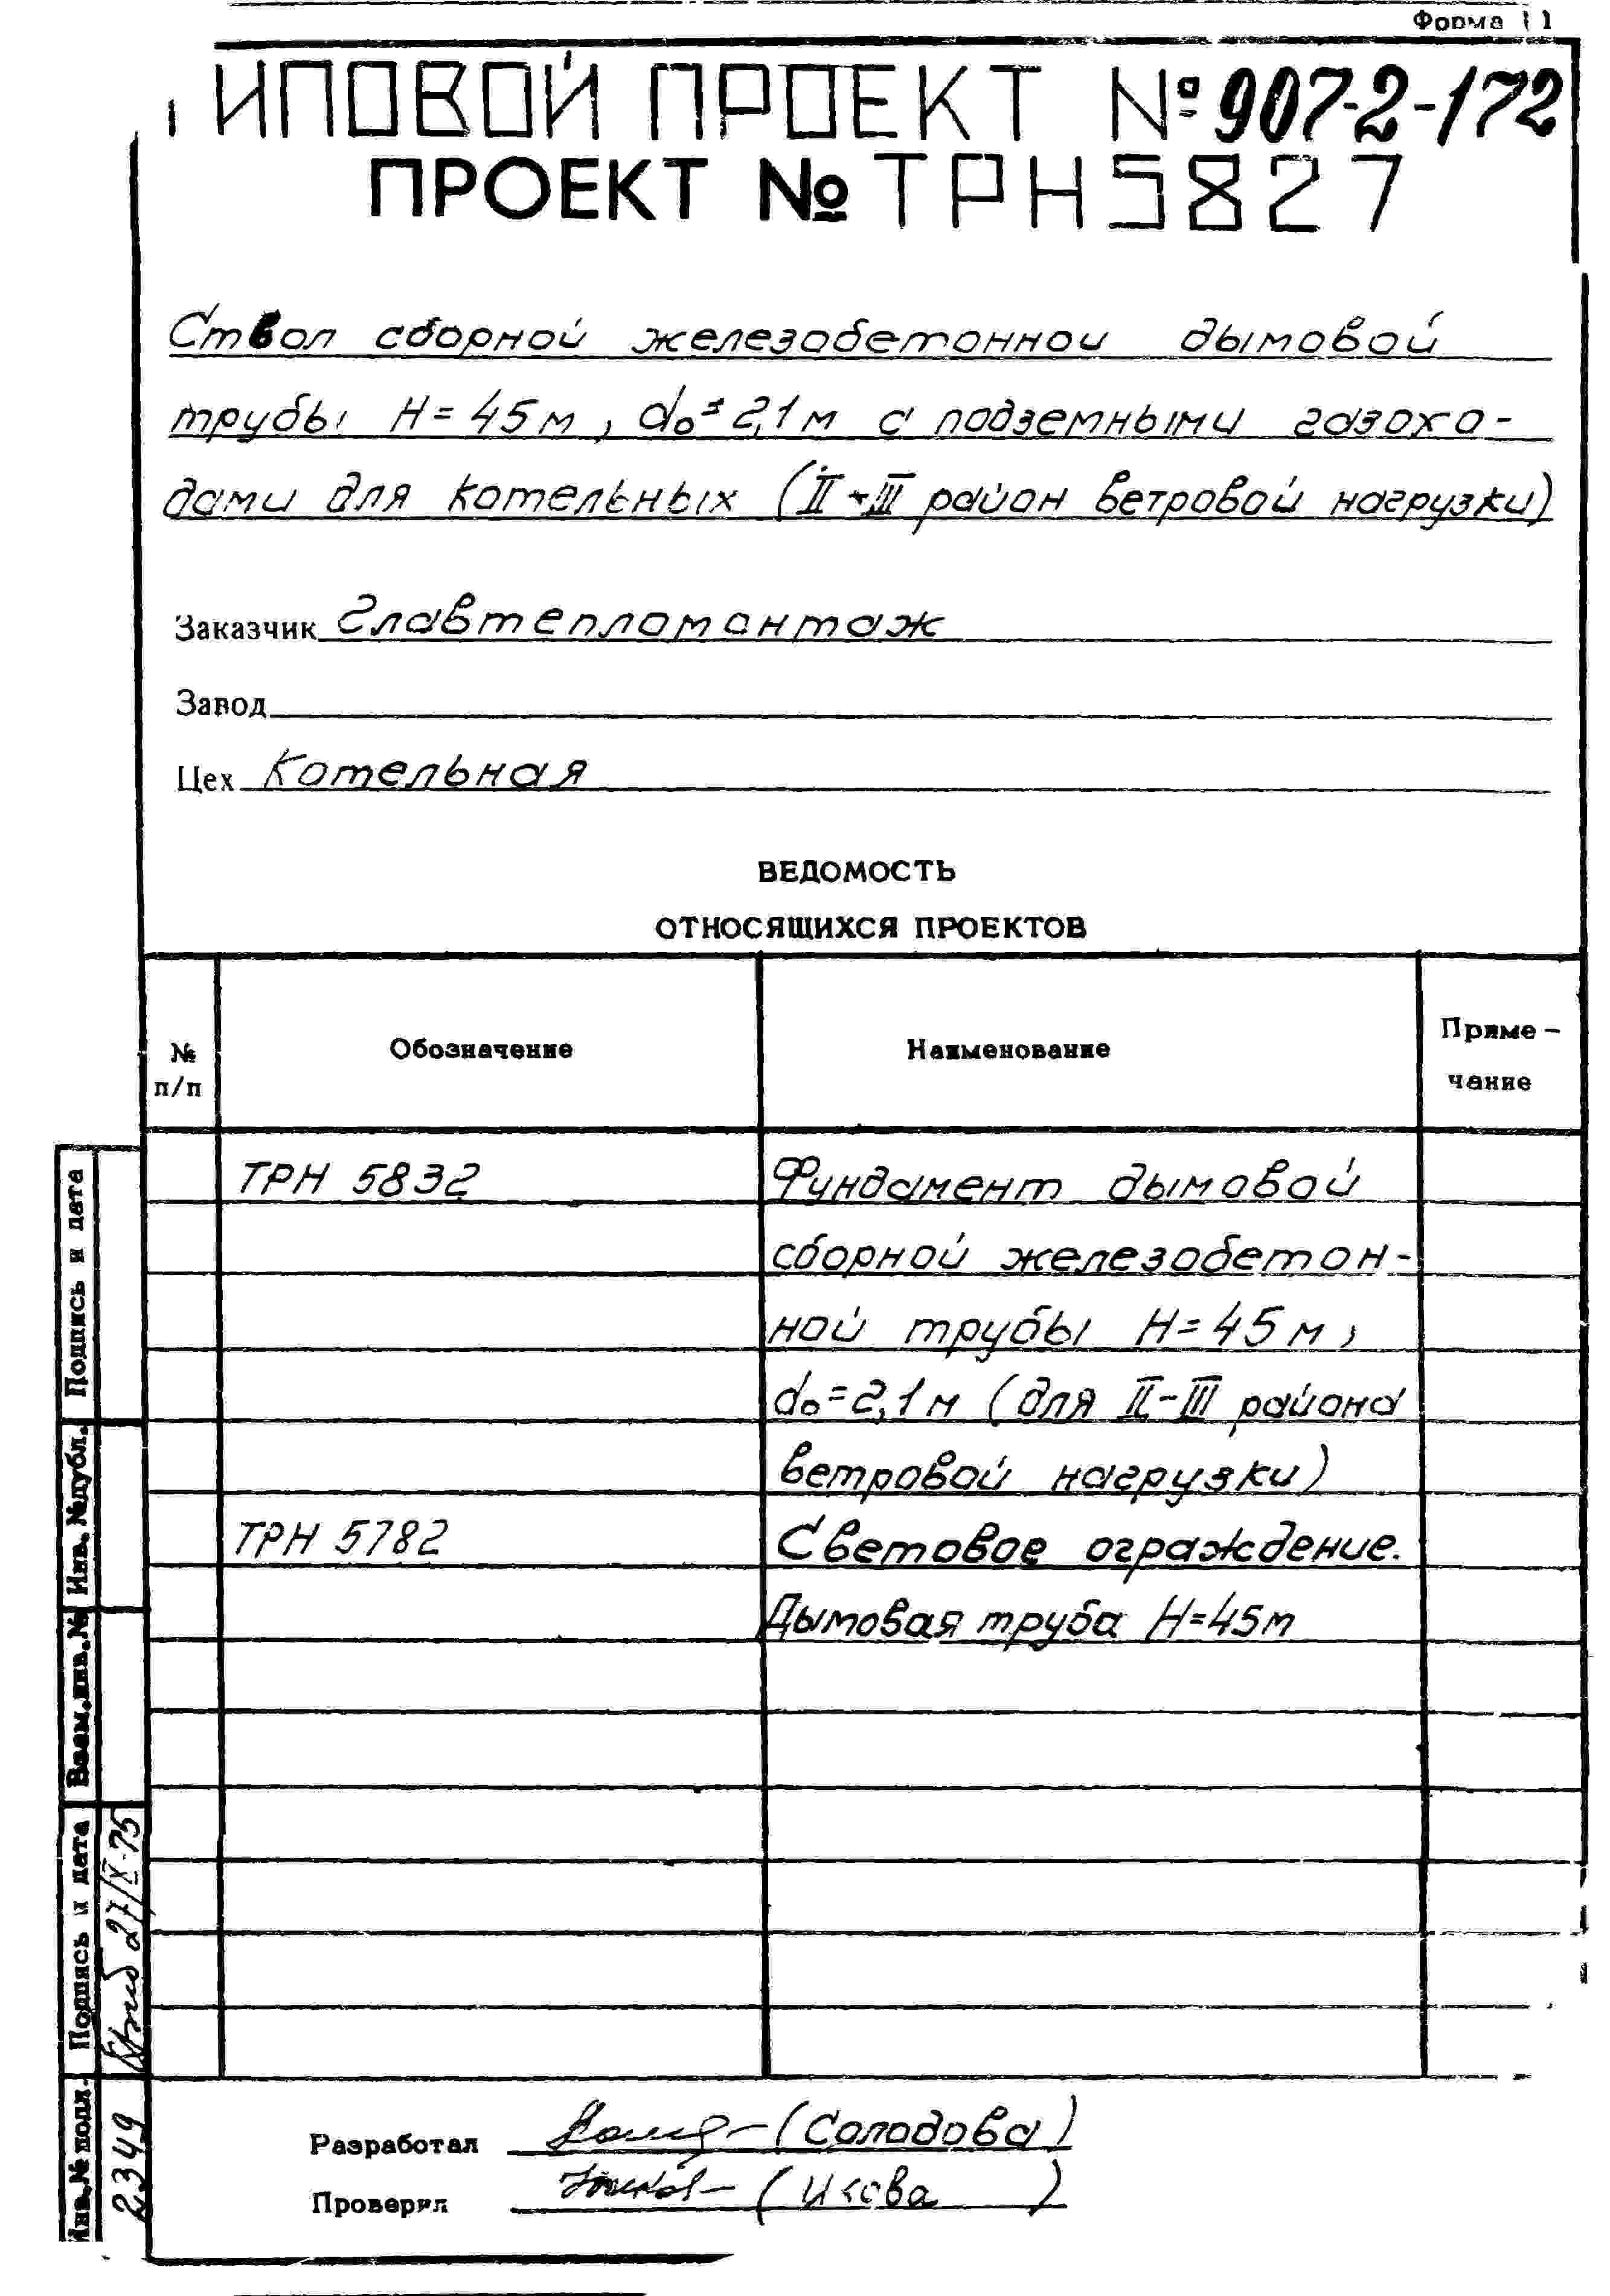 Форма 11
ИПОВОЙ ПРОЕКТ № 907-2-172
ПРОЕКТ № ТРН5827
Ствол сборной железобетонной дымовой
трубы Н=45м, do=2,1м с подземными газохо-
дами для котельных (II-III район ветровой нагрузки)
Заказчик Главтепломонтаж
Завод
Цех Котельная
ВЕДОМОСТЬ
ОТНОСЯЩИХСЯ ПРОЕКТОВ
№ п/п Обозначение Наименование Приме-чание
ТРН 5832 Фундамент дымовой
сборной железобетон-
ной трубы Н=45м,
do=2,1м (для II-III района
ветровой нагрузки)
ТРН 5782 Световое ограждение.
Дымовая труба Н=45м
Подпись и дата
Инв.№дубл.
Взам.инв.№
Подпись и дата 27/X-75
Инв.№подл. 2349
Разработал (Солодова)
Проверил